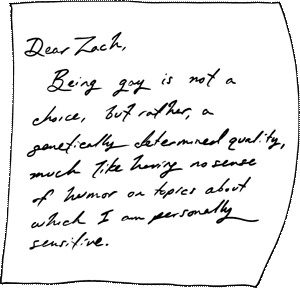 Dear Zach,
Being gay is not a
choice, but rather, a
genetically determined quality,
much like having no sense
of humor on topics about
which I am personally
sensitive.